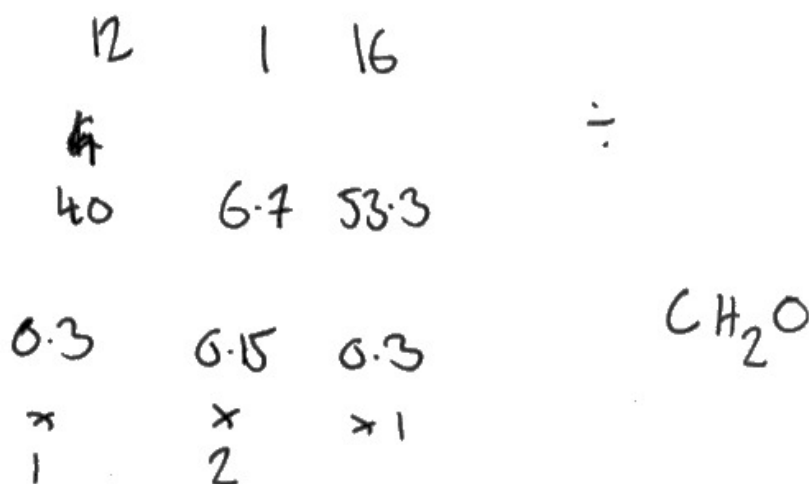 12 1 16
÷
40 6.7 53.3
0.3 0.15 0.3
CH₂O
× × ×1
1 2